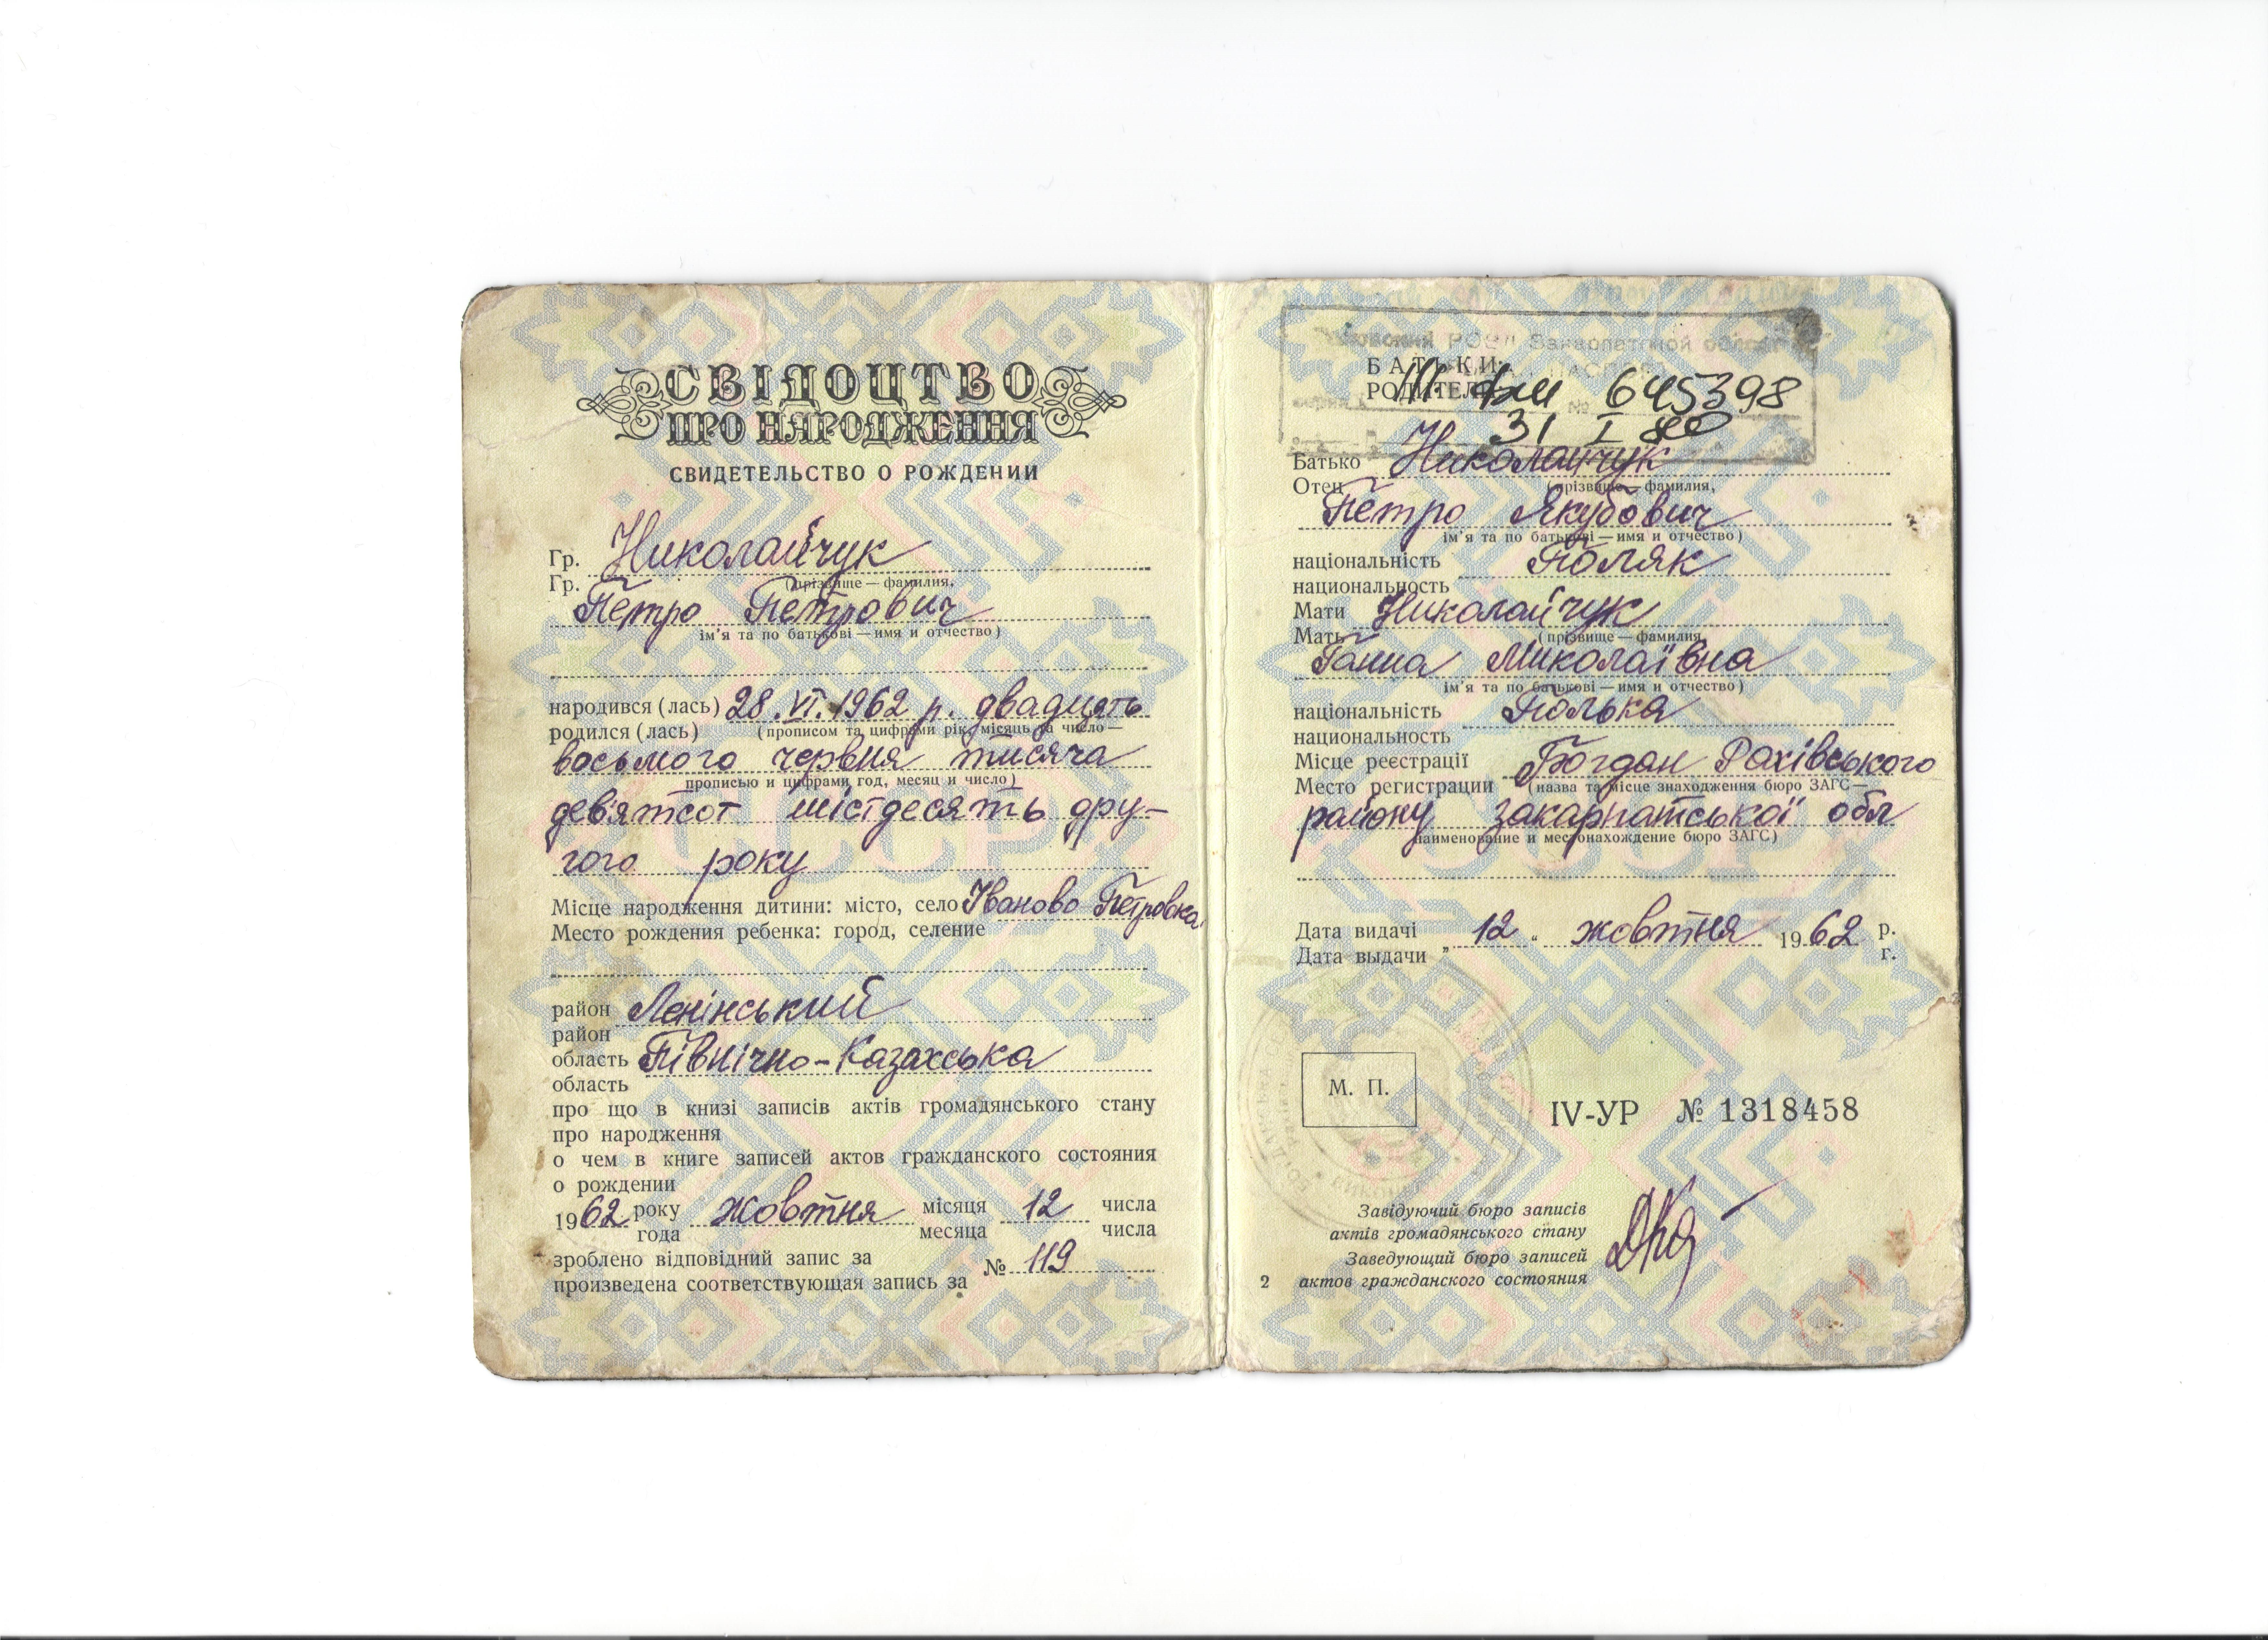 СВІДОЦТВО
ПРО НАРОДЖЕННЯ
СВИДЕТЕЛЬСТВО О РОЖДЕНИИ
Гр. Николайчук
Гр. (прізвище — фамилия,
Петро Петрович
ім'я та по батькові — имя и отчество)
народився (лась) 28.VI.1962 р. двадцять
родился (лась) (прописом та цифрами рік, місяць та число —
восьмого червня тисяча
прописью и цифрами год, месяц и число)
дев'ятсот шістдесять дру-
гого року
Місце народження дитини: місто, село Іваново Петровка
Место рождения ребенка: город, селение
район Ленінський
район
область Північно-Казахська
область
про що в книзі записів актів громадянського стану
про народження
о чем в книге записей актов гражданского состояния
о рождении
1962 року жовтня місяця 12 числа
года месяца числа
зроблено відповідний запис за
№ 119
произведена соответствующая запись за
РОВД Закарпатской области
БАТЬКИ:
РОДИТЕЛИ:
645398
№
31 I 80
Батько Николайчук
Отец (прізвище — фамилия,
Петро Якубович
ім'я та по батькові — имя и отчество)
національність Поляк
национальность
Мати Николайчук
Мать (прізвище — фамилия,
Ганна Миколаївна
ім'я та по батькові — имя и отчество)
національність Полька
национальность
Місце реєстрації Богдан Рахівського
Место регистрации (назва та місце знаходження бюро ЗАГС —
району закарпатської обл
наименование и местонахождение бюро ЗАГС)
Дата видачі „ 12 “ жовтня 1962 р.
Дата выдачи г.
М. П.
IV-УР № 1318458
Завідуючий бюро записів
актів громадянського стану
Заведующий бюро записей
2 актов гражданского состояния